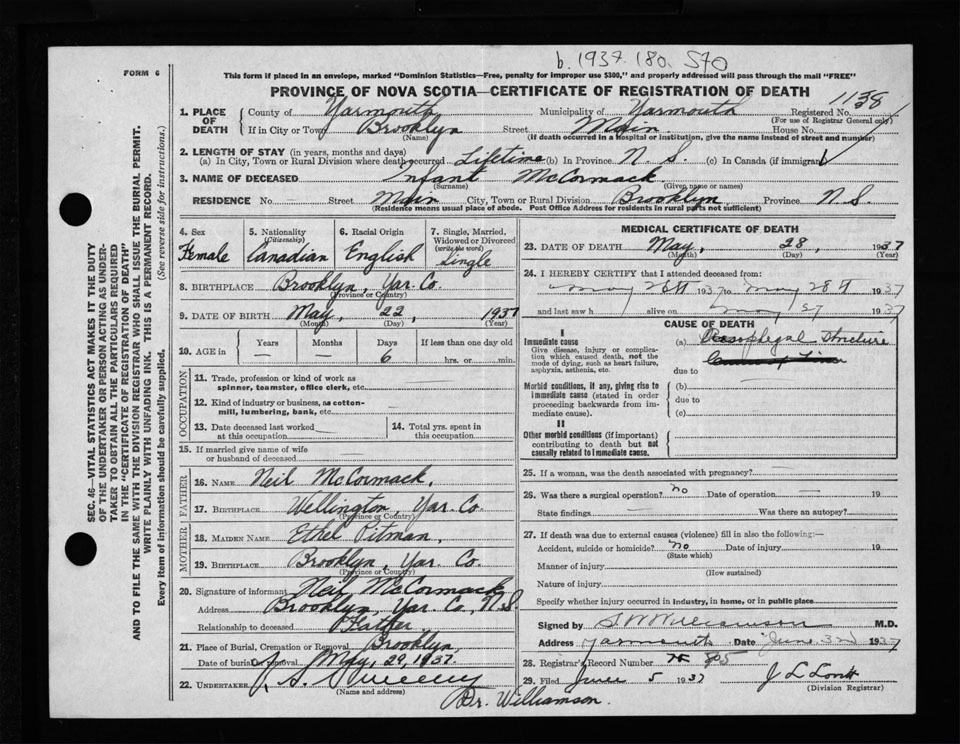 b. 1937. 180. 570
FORM 6
This form if placed in an envelope, marked "Dominion Statistics—Free, penalty for improper use $300," and properly addressed will pass through the mail "FREE"
PROVINCE OF NOVA SCOTIA—CERTIFICATE OF REGISTRATION OF DEATH
1138
1. PLACE OF DEATH
County of Yarmouth Municipality of Yarmouth Registered No.
(For use of Registrar General only)
If in City or Town Brooklyn Street Main House No.
(Name) (If death occurred in a hospital or institution, give the name instead of street and number)
2. LENGTH OF STAY (in years, months and days)
(a) In City, Town or Rural Division where death occurred Lifetime (b) In Province N. S. (c) In Canada (if immigrant)
3. NAME OF DECEASED Infant McCormack
(Surname) (Given name or names)
RESIDENCE No. — Street Main City, Town or Rural Division Brooklyn Province N.S.
(Residence means usual place of abode. Post Office Address for residents in rural parts not sufficient)
4. Sex
Female
5. Nationality
(Citizenship)
Canadian
6. Racial Origin
English
7. Single, Married, Widowed or Divorced
(write the word)
Single
8. BIRTHPLACE Brooklyn, Yar. Co.
(Province or Country)
9. DATE OF BIRTH May, 22, 1937
(Month) (Day) (Year)
10. AGE in
Years Months Days If less than one day old
— — 6 hrs. or min.
OCCUPATION
11. Trade, profession or kind of work as spinner, teamster, office clerk, etc.
12. Kind of industry or business, as cotton-mill, lumbering, bank, etc.
13. Date deceased last worked at this occupation
14. Total yrs. spent in this occupation
15. If married give name of wife or husband of deceased
FATHER
16. NAME Neil McCormack,
17. BIRTHPLACE Wellington, Yar. Co.
(Province or Country)
MOTHER
18. MAIDEN NAME Ethel Pitman,
19. BIRTHPLACE Brooklyn, Yar. Co.
(Province or Country)
20. Signature of informant Neil McCormack
Address Brooklyn, Yar. Co., N.S
Relationship to deceased Father,
21. Place of Burial, Cremation or Removal Brooklyn,
Date of burial or removal May, 29, 1937.
22. UNDERTAKER J. S. Sweeny
(Name and address)
MEDICAL CERTIFICATE OF DEATH
23. DATE OF DEATH May, 28, 1937
(Month) (Day) (Year)
24. I HEREBY CERTIFY that I attended deceased from:
May 26th 1937 to May 28th 1937
and last saw h alive on May 27 1937
CAUSE OF DEATH
I
Immediate cause
Give disease, injury or complication which caused death, not the mode of dying, such as heart failure, asphyxia, asthenia, etc.
(a) Oesophegal Stricture
due to
Morbid conditions, if any, giving rise to immediate cause (stated in order proceeding backwards from immediate cause).
(b)
due to
(c)
II
Other morbid conditions (if important) contributing to death but not causally related to immediate cause.
25. If a woman, was the death associated with pregnancy?
26. Was there a surgical operation? no Date of operation — 19
State findings Was there an autopsy?
27. If death was due to external causes (violence) fill in also the following:—
Accident, suicide or homicide? no Date of injury 19
(State which)
Manner of injury
(How sustained)
Nature of injury
Specify whether injury occurred in industry, in home, or in public place
Signed by S W Williamson M.D.
Address Yarmouth Date June 3rd 1937
28. Registrar's Record Number 805
29. Filed June 5 1937 J L Lovitt
(Division Registrar)
Dr. Williamson.
SEC. 46—VITAL STATISTICS ACT MAKES IT THE DUTY
OF THE UNDERTAKER OR PERSON ACTING AS UNDER-
TAKER TO OBTAIN ALL THE PARTICULARS REQUIRED
IN THE "CERTIFICATE OF REGISTRATION OF DEATH"
AND TO FILE THE SAME WITH THE DIVISION REGISTRAR WHO SHALL ISSUE THE BURIAL PERMIT.
WRITE PLAINLY WITH UNFADING INK. THIS IS A PERMANENT RECORD.
Every item of information should be carefully supplied. (See reverse side for instructions.)